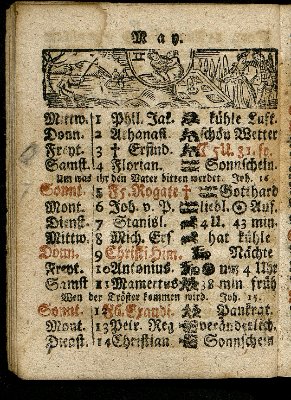 May.
Mittw. 1 Phil. Jak. kühle Luft.
Donn. 2 Athanas. schön Wetter
Freyt. 3 † Erfind. 5 U. 31.
Samst. 4 Florian. Sonnschein.
Um was ihr den Vater bitten werdet. Joh. 16.
Sonnt. 5 F5. Rogate † Gotthard
Mont. 6 Joh. v. P. liebl. ☉ Auf.
Dienst. 7 Stanisl. 4 U. 43 min.
Mittw. 8 Mich. Ersch. hat kühle
Donn. 9 Christi Him. Nächte
Freyt. 10 Antonius. um 4 Uhr
Samst 11 Mamertus 38 min früh
Wen der Tröster kommen wird. Joh. 15.
Sonnt. 12 F6. Exaudi. Pankrat.
Mont. 13 Petr. Reg veränderlich.
Dienst. 14 Christian Sonnschein